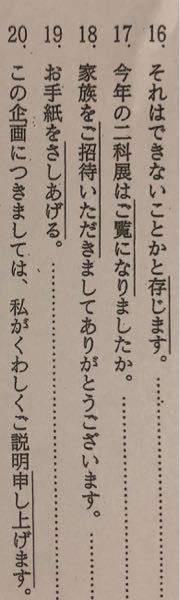 16. それはできないことかと存じます。……………
17. 今年の二科展はご覧になりましたか。……………
18. 家族をご招待いただきましてありがとうございます。……
19. お手紙をさしあげる。……………………
20. この企画につきましては、私がくわしくご説明申し上げます。